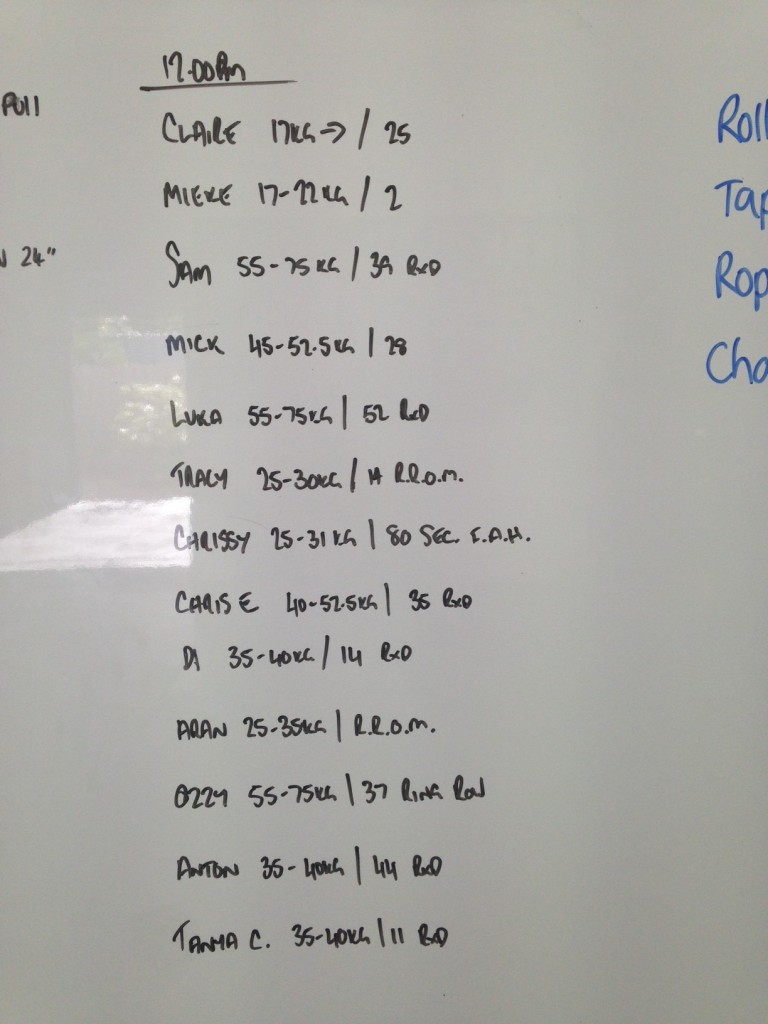 12.00Pm
PUll
CLAIRE 17KG → / 25
MIEKE 17-22KG / 2
24"
SAM 55-75KG / 39 RxD
MICK 45-52.5KG | 28
LUKA 55-75KG | 52 RxD
TRACY 25-30KG / 14 R.R.O.M.
CHRISSY 25-31KG | 80 SEC. F.A.H.
CHRIS E 40-52.5KG | 35 RxD
DI 35-40KG / 14 RxD
ARAN 25-35KG | R.R.O.M.
OZZY 55-75KG | 37 RING ROW
ANTON 35-40KG | 44 RxD
C. 35-40KG / 11 RxD
Roll
Tap
Rop
Cha